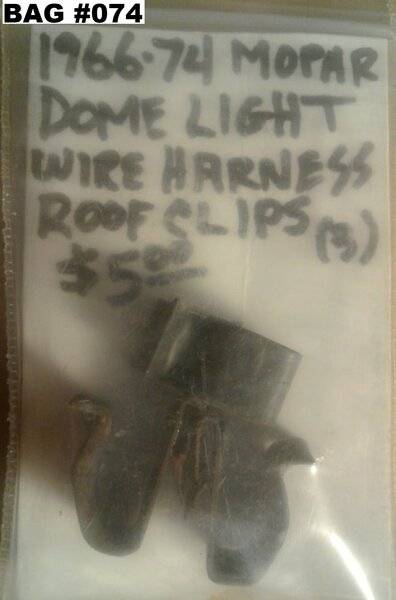 BAG #074
1966-74 MOPAR
DOME LIGHT
WIRE HARNESS
ROOF CLIPS (3)
$5.00